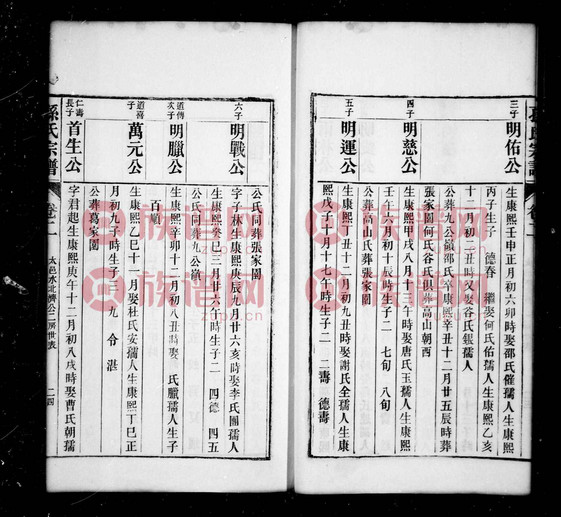 孫氏宗譜
卷二
三子
明佑公
生康熙壬申正月初六卯時娶邵氏催孺人生康熙
丙子生子 德春 繼娶何氏佑孺人生康熙乙亥
十二月初二戌時又娶谷氏銀孺人
公葬九公嶺邵氏卒康熙辛丑十二月廿五辰時葬
張家園何氏谷氏俱葬高山朝酉
四子
明慈公
生康熙甲戌八月十一午時娶唐氏玉孺人生康熙
壬午六月初十辰時生子二 七旬 八旬
公葬高山氏葬張家園
五子
明運公
生康熙丁丑十二月初二丑時娶謝氏全孺人生康
熙戊子十月十七午時生子二 二壽 德壽
公氏同葬張家園
六子
明戰公
字子林生康熙庚辰九月廿六亥時娶李氏團孺人
生康熙癸巳三月廿六午時生子二 四德 四五
公氏同葬九公嶺
道傳次子
明臘公
生康熙辛卯十二月初八丑時娶 氏臘孺人生子
百順
道喜子
萬元公
生康熙乙巳十一月娶杜氏安孺人生康熙丁巳正
月初九子時生子三 九 令 湛
公葬葛家園
仁壽長子
首生公
字君起生康熙庚午十二月初八戌時娶曹氏朝孺
孫氏宗譜
卷二
太邑水北濟公二房世表
二四
族谱网